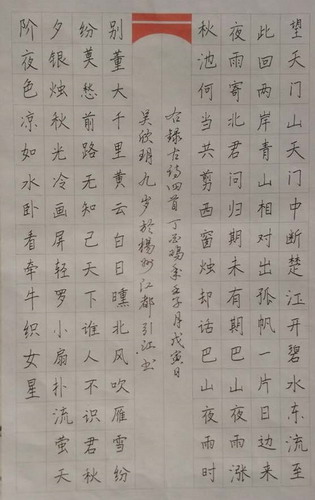 望天门山天门中断楚江开碧水东流至
此回两岸青山相对出孤帆一片日边来
夜雨寄北君问归期未有期巴山夜雨涨
秋池何当共剪西窗烛却话巴山夜雨时
右録古诗四首丁酉鸡年壬子月戊寅日
吴欣玥九岁於楊州江都引江书
别董大千里黄云白日曛北风吹雁雪纷
纷莫愁前路无知己天下谁人不识君秋
夕银烛秋光冷画屏轻罗小扇扑流萤天
阶夜色凉如水卧看牵牛织女星